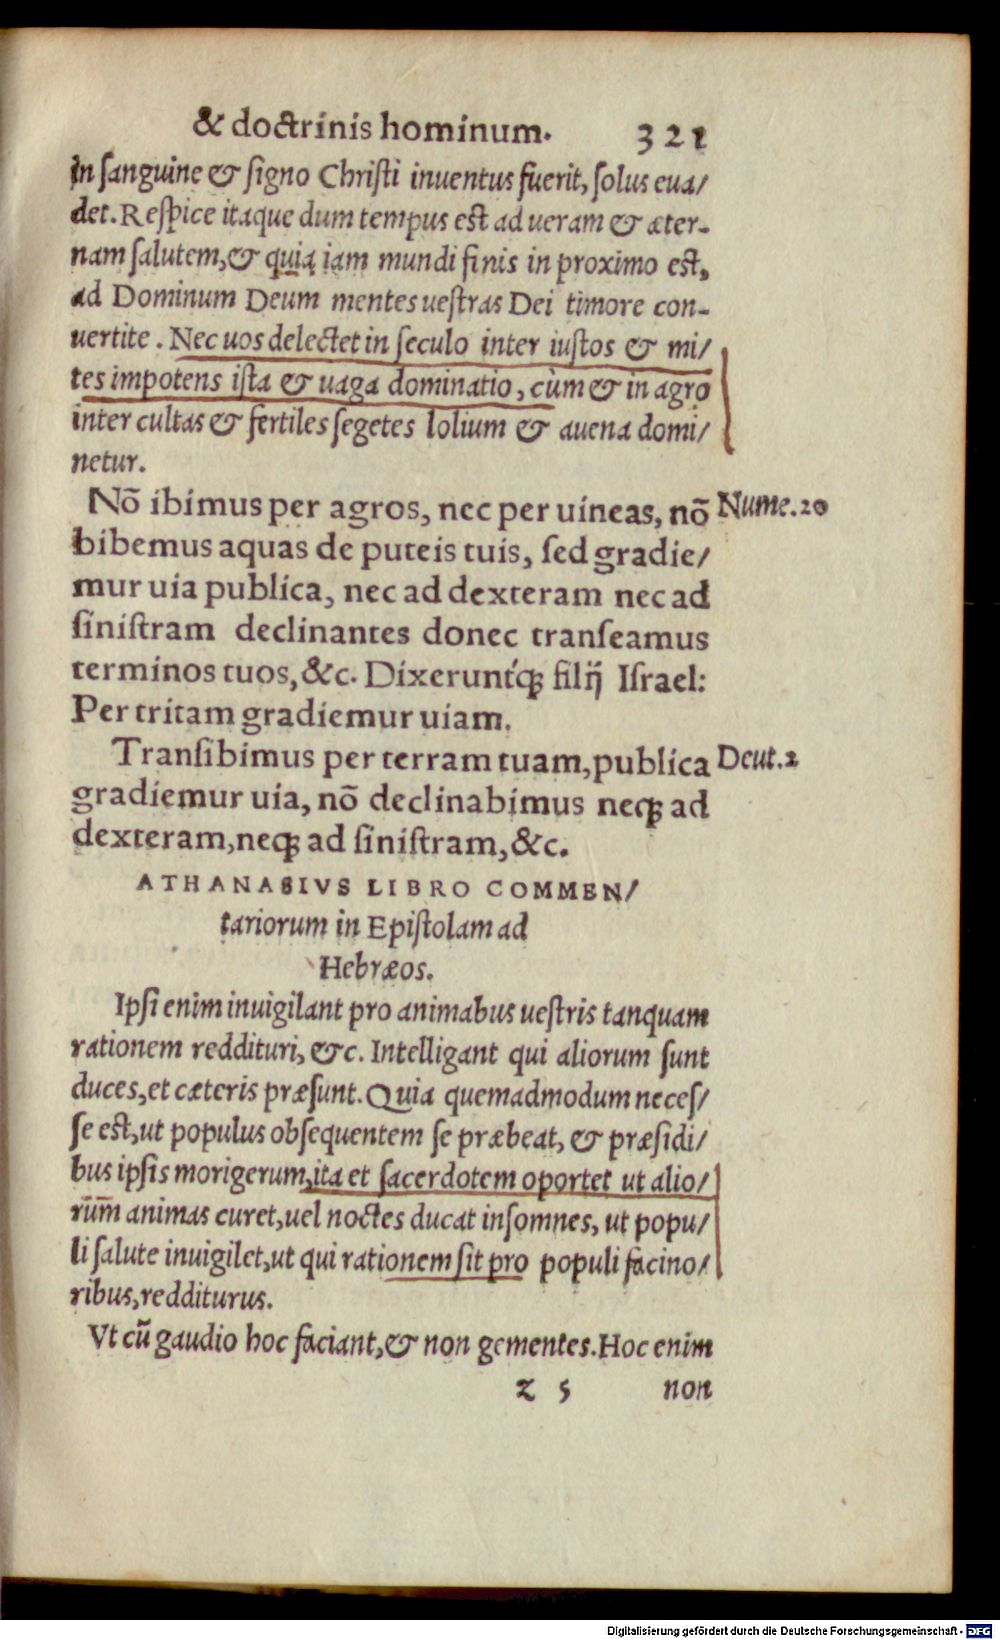 & doctrinis hominum. 321
in ſanguine & ſigno Chriſti inuentus fuerit, ſolus eua/
det. Reſpice itaque dum tempus est ad ueram & æter-
nam ſalutem, & quia iam mundi finis in proximo est,
ad Dominum Deum mentes ueſtras Dei timore con-
uertite. Nec uos delectet in ſeculo inter iuſtos & mi/
tes impotens iſta & uaga dominatio, cùm & in agro
inter cultas & fertiles ſegetes lolium & auena domi/
netur.
Nõ ibimus per agros, nec per uineas, nõ Nume.20
bibemus aquas de puteis tuis, ſed gradie/
mur uia publica, nec ad dexteram nec ad
ſiniſtram declinantes donec tranſeamus
terminos tuos, &c. Dixeruntq́ꝫ filij Iſrael:
Per tritam gradiemur uiam.
Tranſibimus per terram tuam, publica Deut.2
gradiemur uia, nõ declinabimus neqꝫ ad
dexteram, neqꝫ ad ſiniſtram, &c.
ATHANASIVS LIBRO COMMEN/
tariorum in Epiſtolam ad
Hebræos.
Ipſi enim inuigilant pro animabus ueſtris tanquam
rationem reddituri, &c. Intelligant qui aliorum ſunt
duces, et cæteris præſunt. Quia quemadmodum neceſ/
ſe est, ut populus obſequentem ſe præbeat, & præſidi/
bus ipſis morigerum, ita et ſacerdotem oportet ut alio/
rum animas curet, uel noctes ducat inſomnes, ut popu/
li ſalute inuigilet, ut qui rationem ſit pro populi facino/
ribus, redditurus.
Vt cũ gaudio hoc faciant, & non gementes. Hoc enim
z 5 non
Digitalisierung gefördert durch die Deutsche Forschungsgemeinschaft - DFG